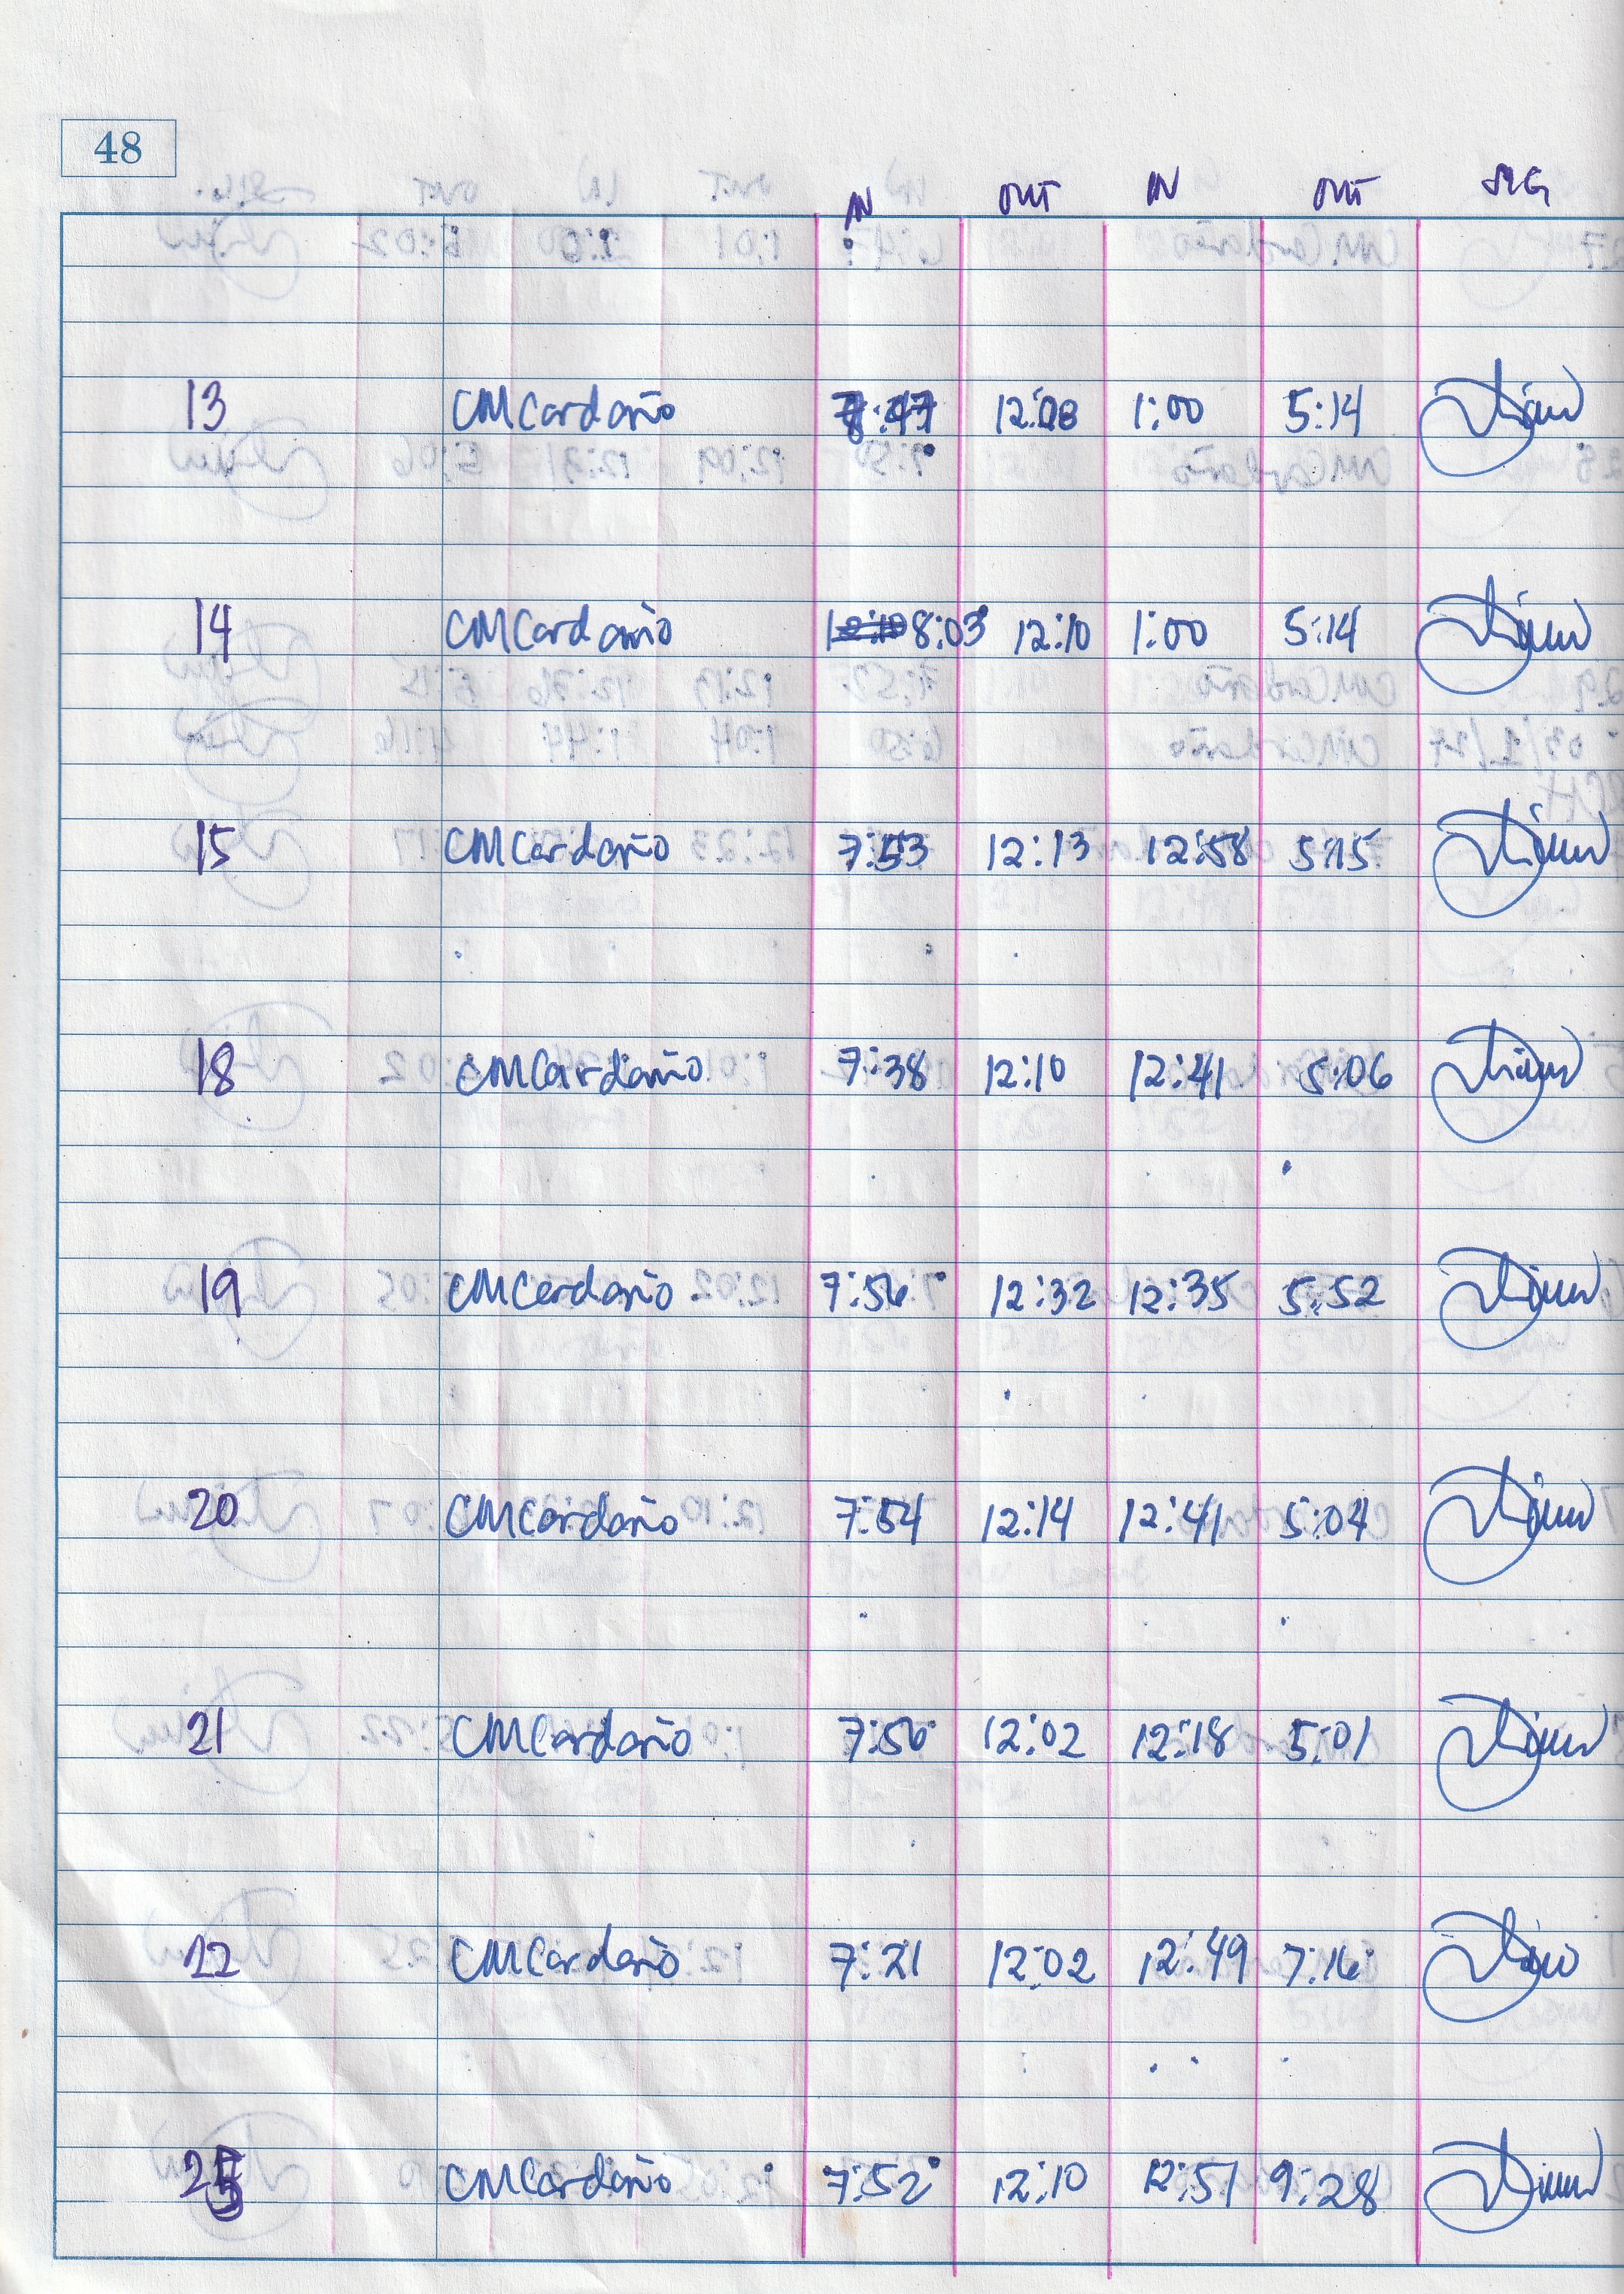 48
IN OUT IN OUT SIG
13 CMCardaño 12:08 1:00 5:14
14 CMCardaño 8:03 12:10 1:00 5:14
15 CMCardaño 7:53 12:13 12:58 5:15
18 CMCardaño 7:38 12:10 12:41 5:06
19 CMCardaño 7:56 12:32 12:35 5:52
20 CMCardaño 7:54 12:14 12:41 5:04
21 CMCardaño 7:56 12:02 12:18 5:01
22 CMCardaño 7:21 12:02 12:49 7:16
25 CMCardaño 7:52 12:10 12:51 9:28